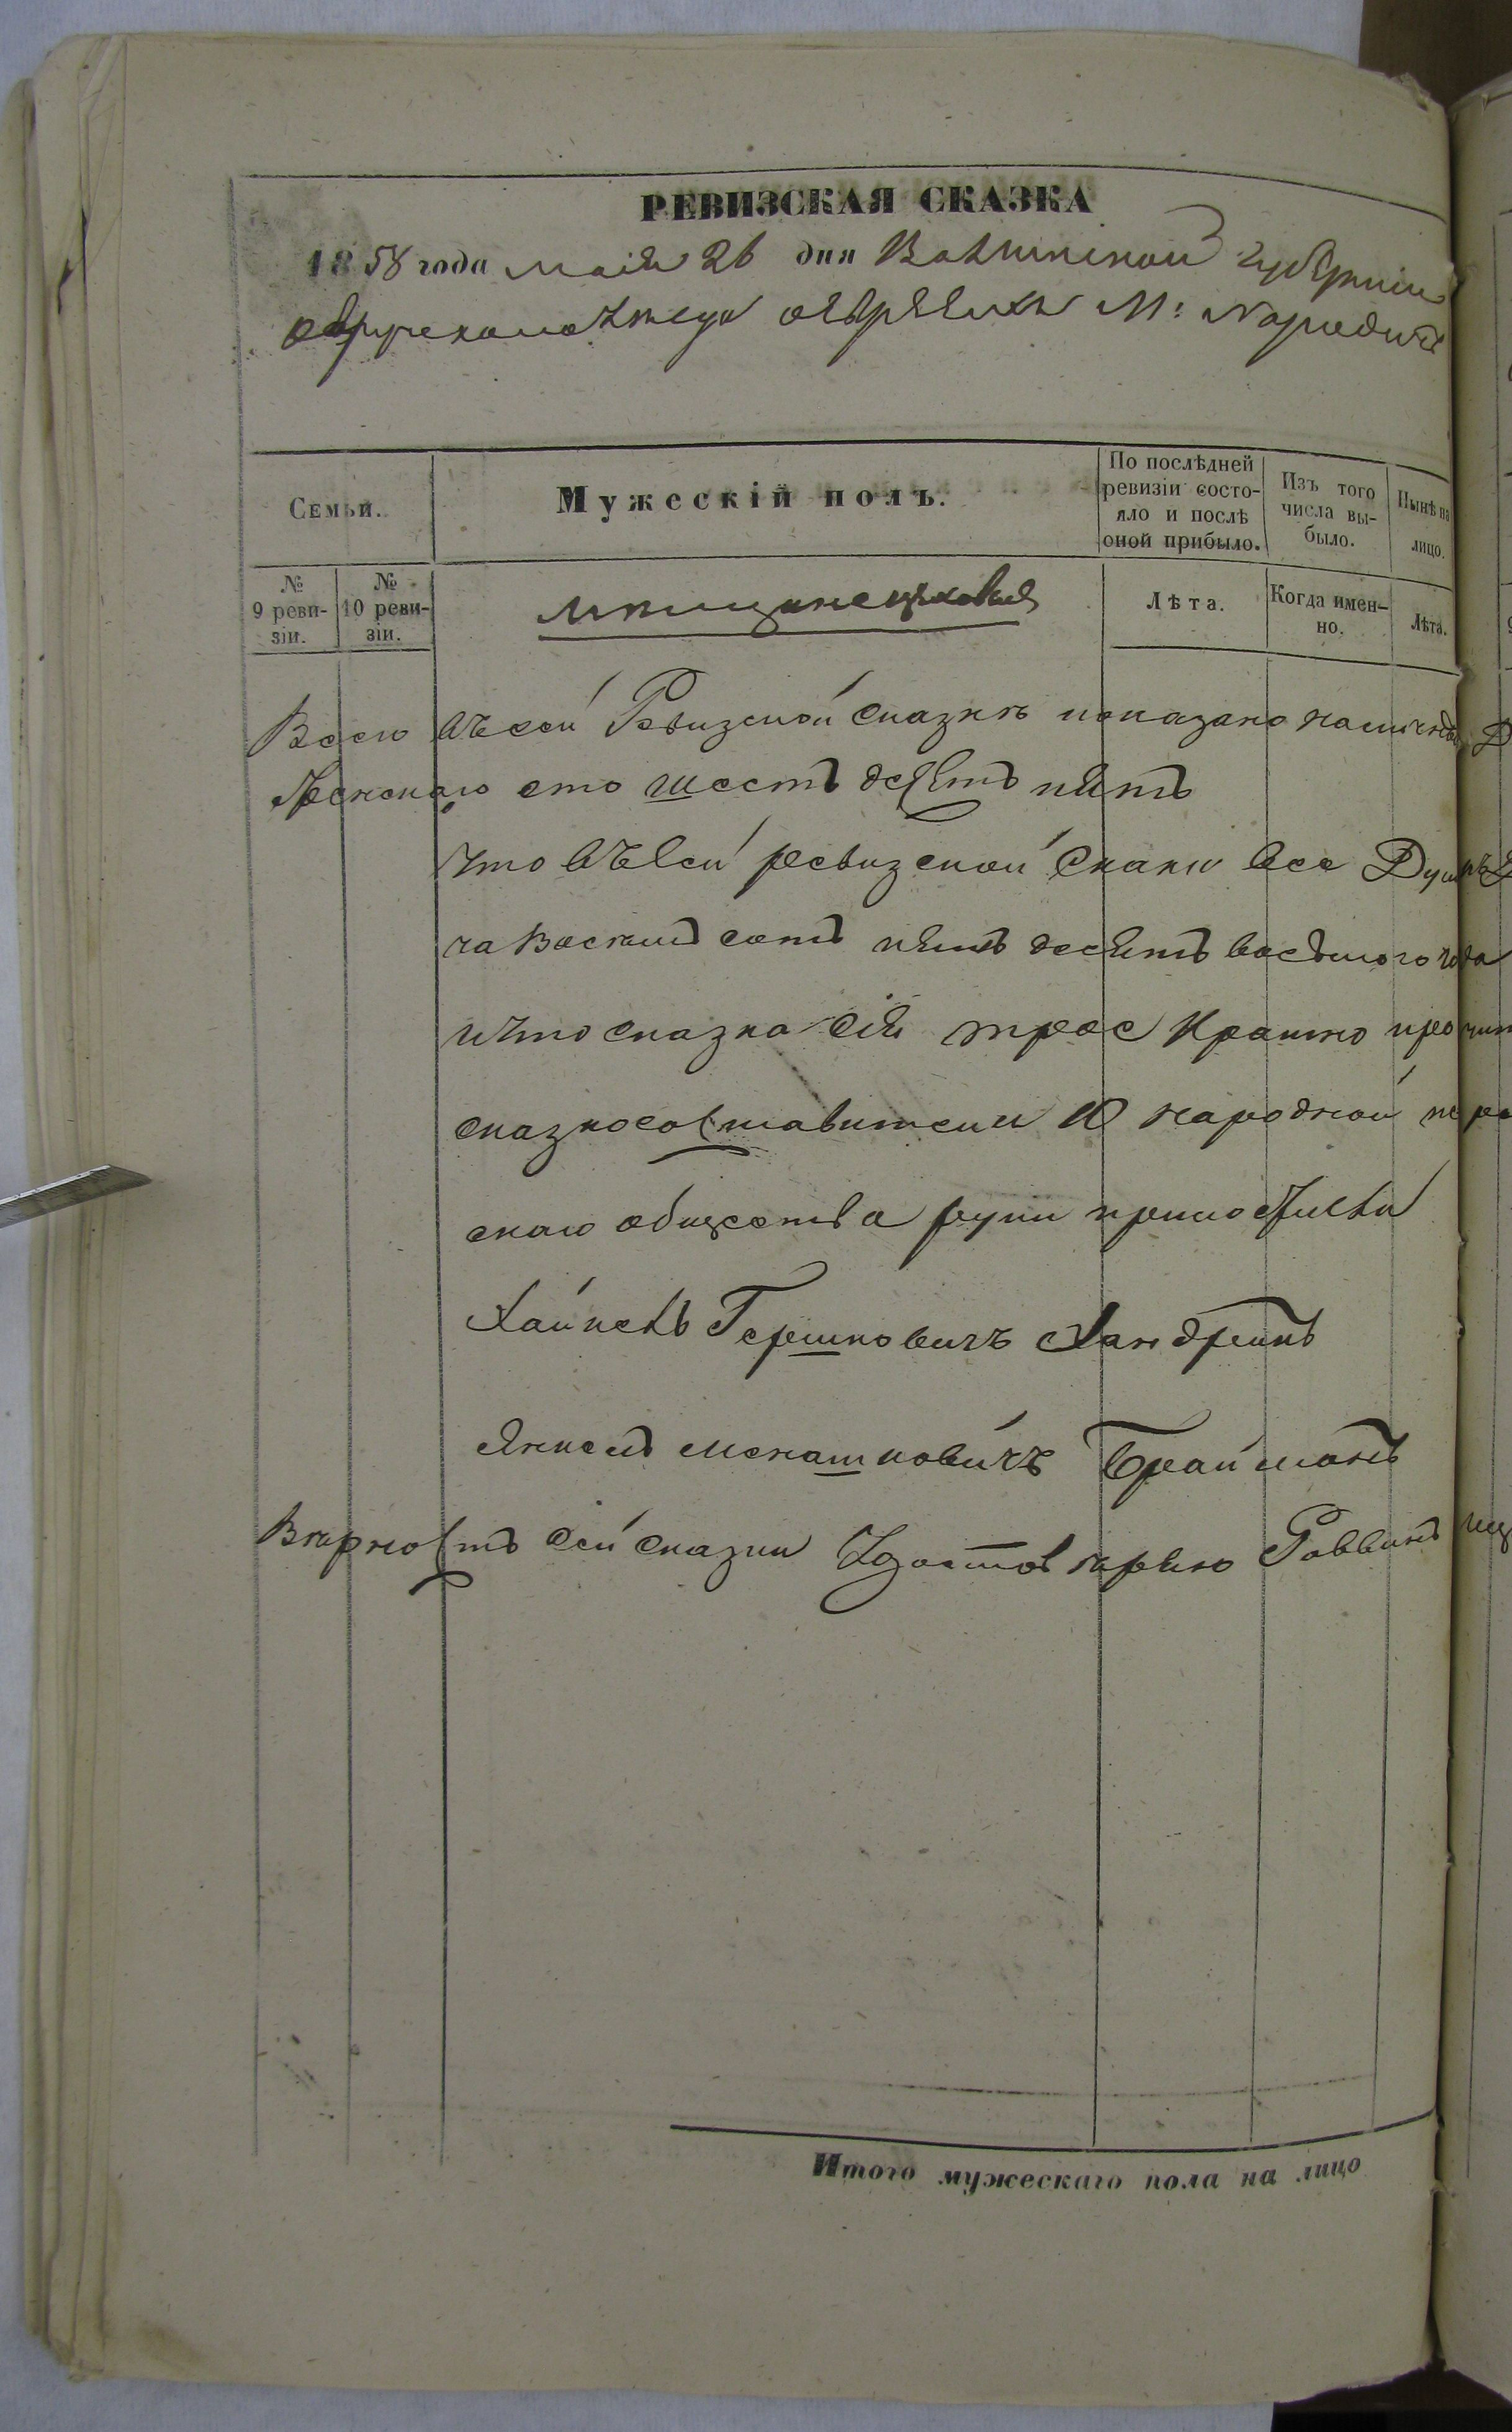 РЕВИЗСКАЯ СКАЗКА
1858 года маія 26 дня Волынской губерніи
овручского уезда евреяхъ М: Народичъ
Семьи.
Мужескій полъ.
По послѣдней ревизіи состояло и послѣ оной прибыло.
Изъ того числа выбыло.
Нынѣ на лицо.
№ 9 ревизіи.
№ 10 ревизіи.
мѣщане
Лѣта.
Когда именно.
Лѣта.
Всего въ сей Ревизской сказкѣ показано
женского сто шесть десятъ пять
Что въ сей ревизской скаки все Душъ
ча восѣмь сотъ пять десять восѣмого года
и что сказка сія трое кратно
сказкосоставители 10 народной
скаго общества руки приложили
Хаймъ Гершковичъ
Янкель Менашковичъ Брайманъ
Вѣрность сей сказки Удостовѣряю Раввинъ
Итого мужескаго пола на лицо